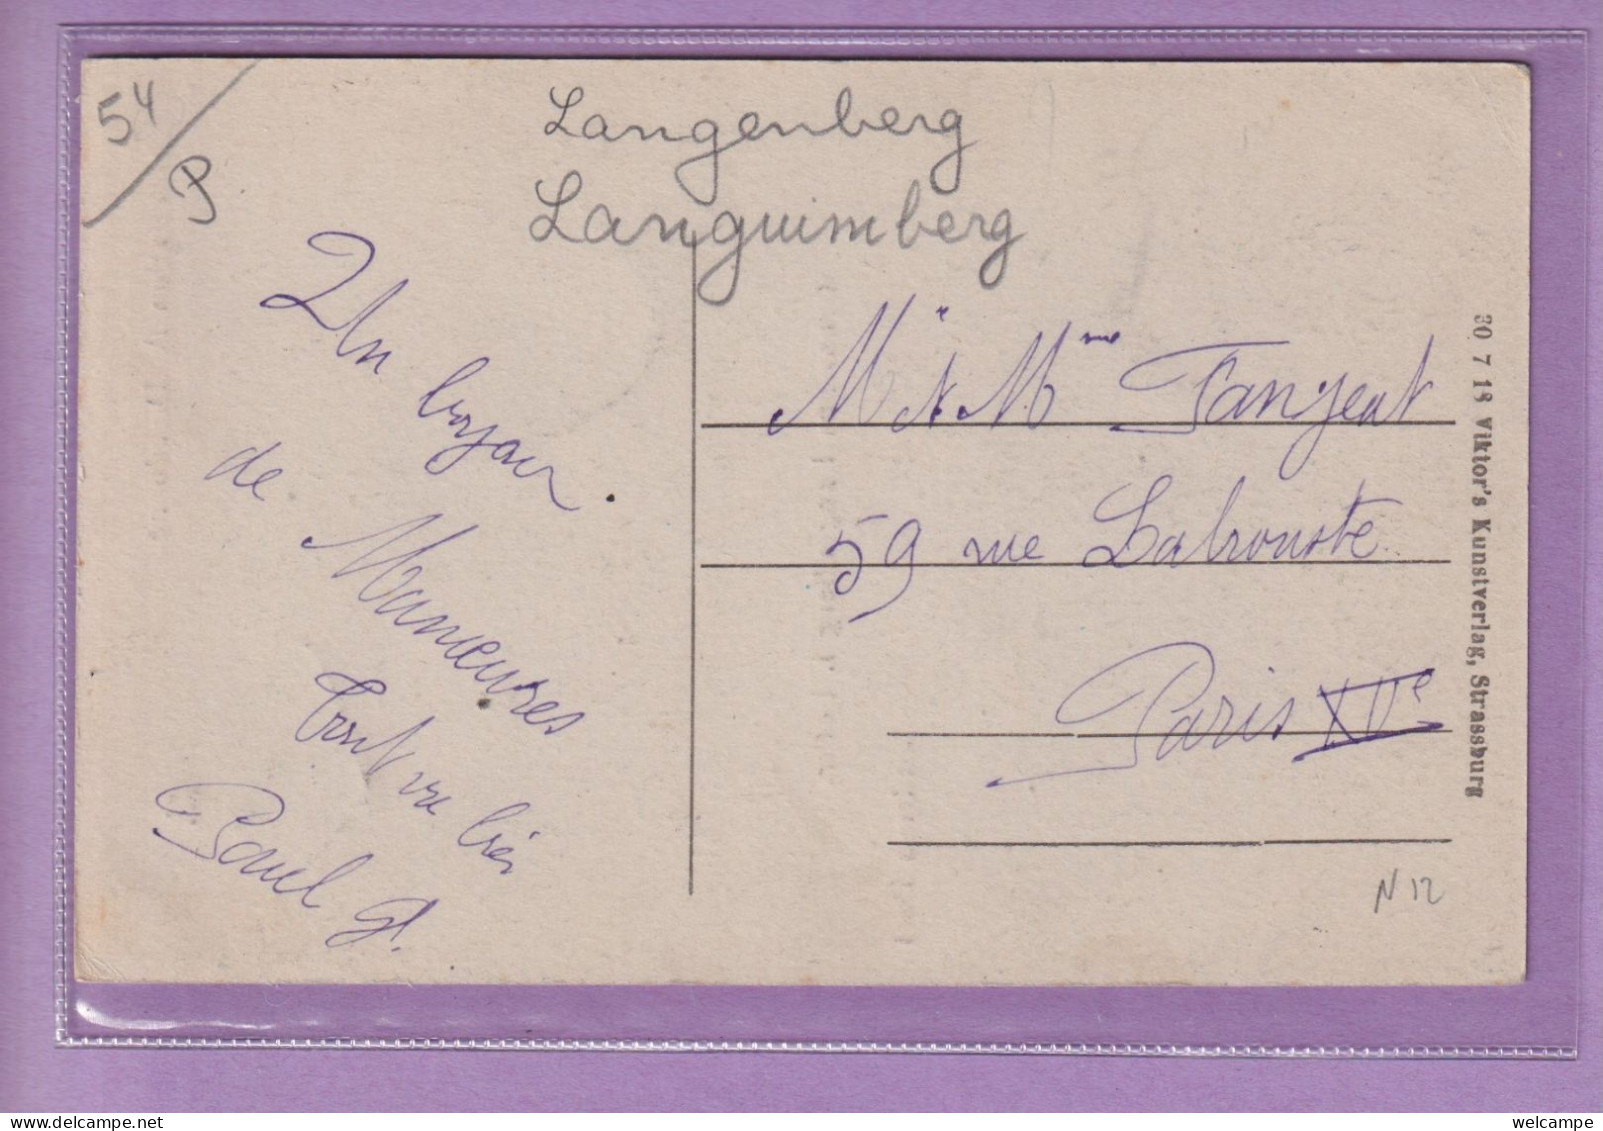 54
P
Langenberg
Languimberg
Un
de Manoeuvres
Tout va bien
Paul
Mr & Mme Tangent
59 rue Labrouste
Paris XVe
30 7 18 Viktor's Kunstverlag, Strassburg
N 12
welcampe
welcampe.com